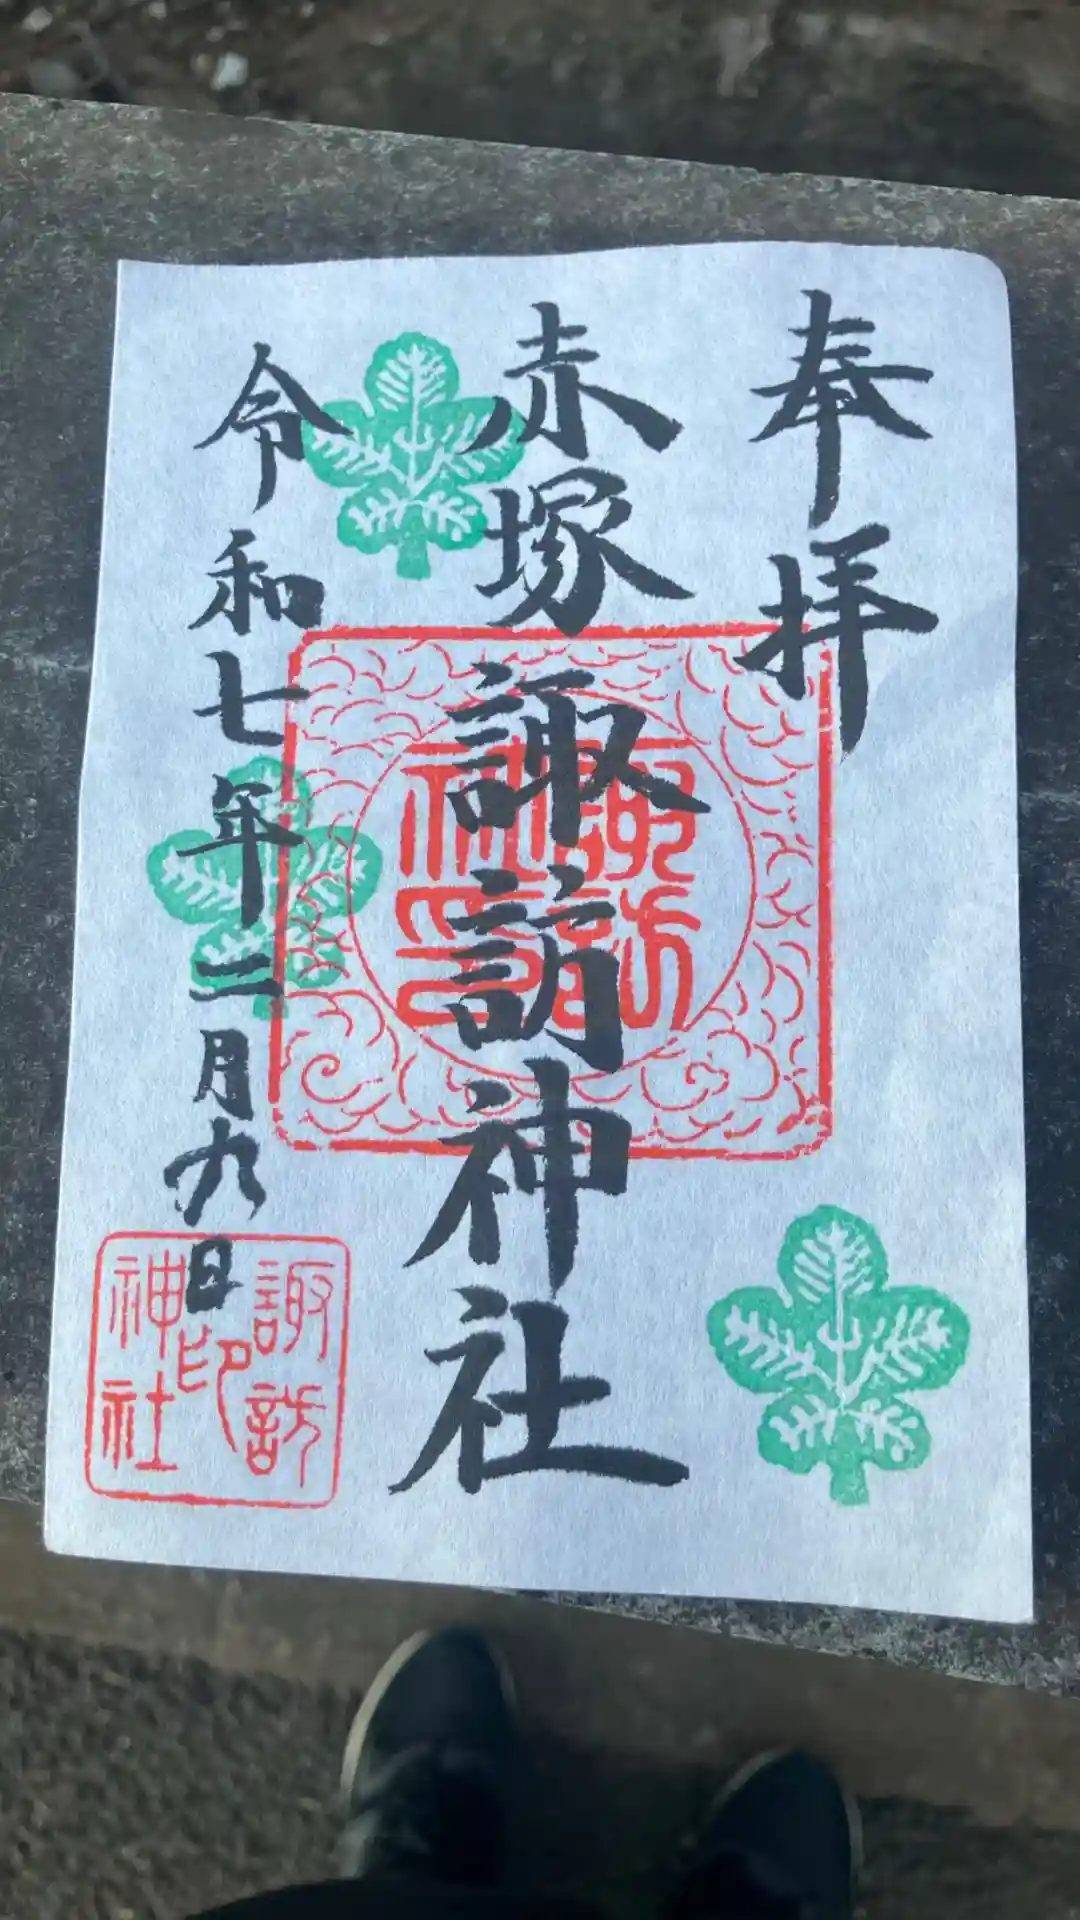 奉拝
赤塚諏訪神社
令和七年二月九日
諏訪
神社
印
諏訪
神社
印